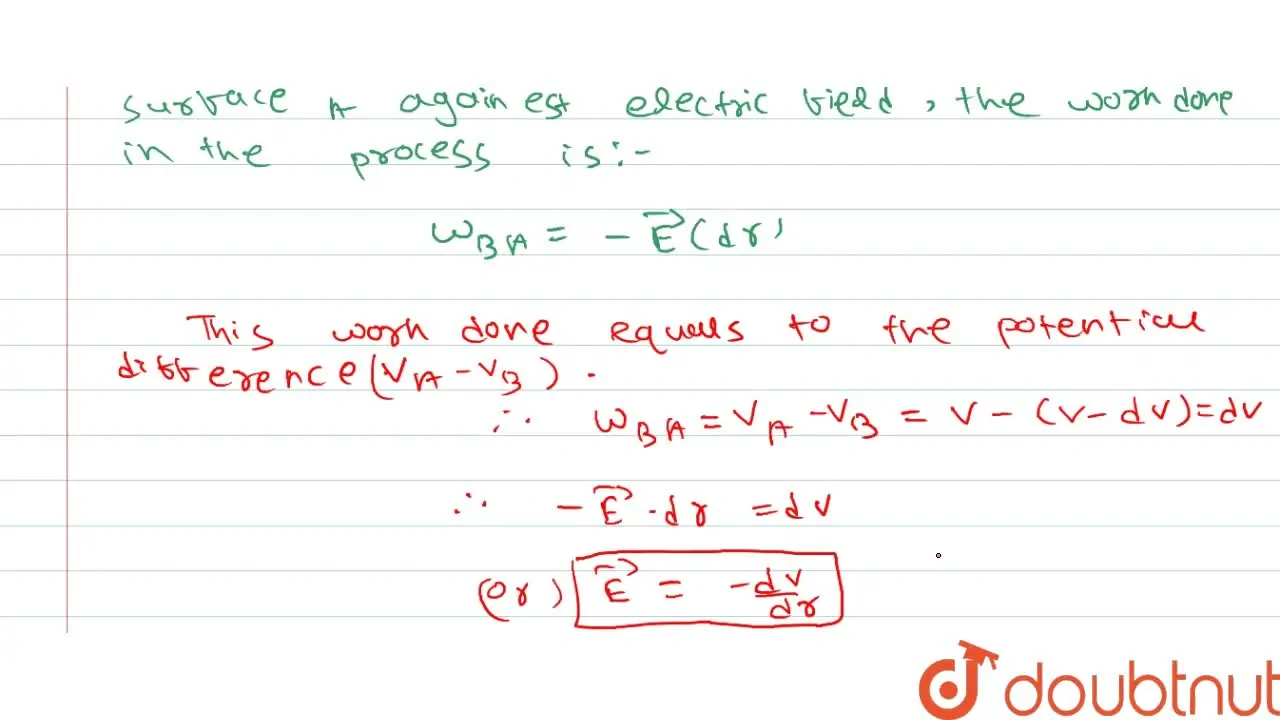 surface A againest electric field, the work done
in the process is:-
W_BA = - E⃗ (dr)
This work done equals to the potential
difference (V_A - V_B).
∴ W_BA = V_A - V_B = V - (V - dV) = dV
∴ - E⃗ · dr = dV
(or) E⃗ = - dV/dr
doubtnut